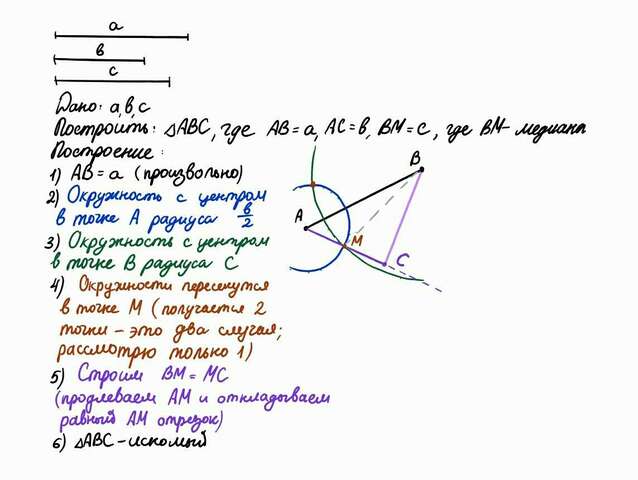 a
в
c
Дано: a, в, c
Построить: △ABC, где AB = a, AC = в, BM = c, где BM - медиана
Построение:
1) AB = a (произвольно)
2) Окружность с центром
в точке A радиуса в/2
3) Окружность с центром
в точке B радиуса C
4) Окружности пересекутся
в точке M (получается 2
точки - это два случая;
рассмотрю только 1)
5) Строим BM = MC
(продлеваем AM и откладываем
равный AM отрезок)
6) △ABC - искомый
B
A
M
C